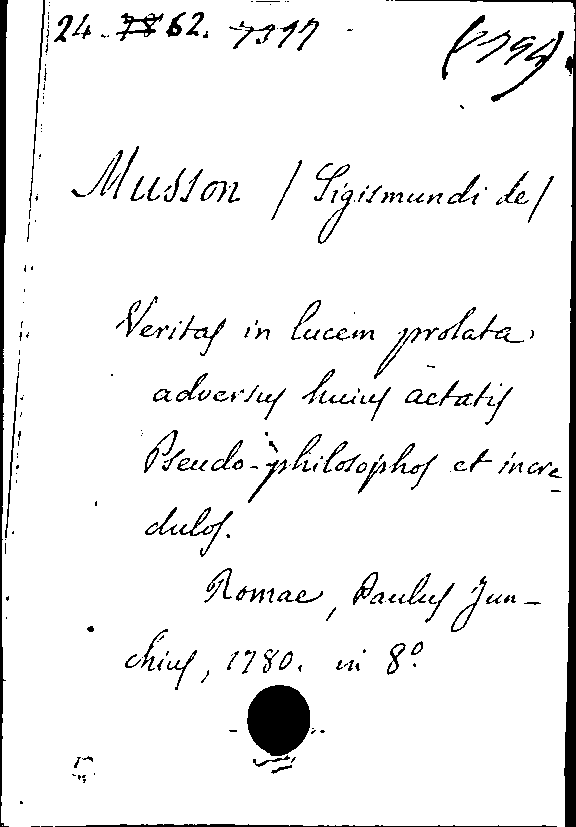 24. 7862. 7397
Musson / Sigismundi de /
Veritas in lucem prolata
adversus huius aetatis
Pseudo-philosophos et incre-
dulos.
Romae, Paulus Jun-
chius, 1780. in 8º